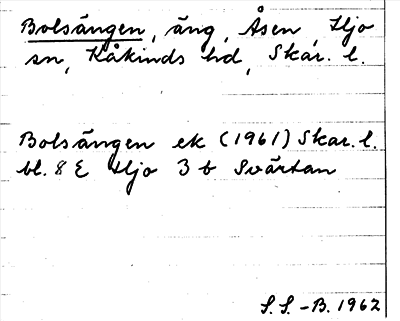 Bolsängen, äng, Åsen, Hjo
sn, Kåkinds hd, Skar. l.
Bolsängen ek (1961) Skar. l.
bl. 8 E Hjo 3 b Svärtan
S. S. -B. 1962